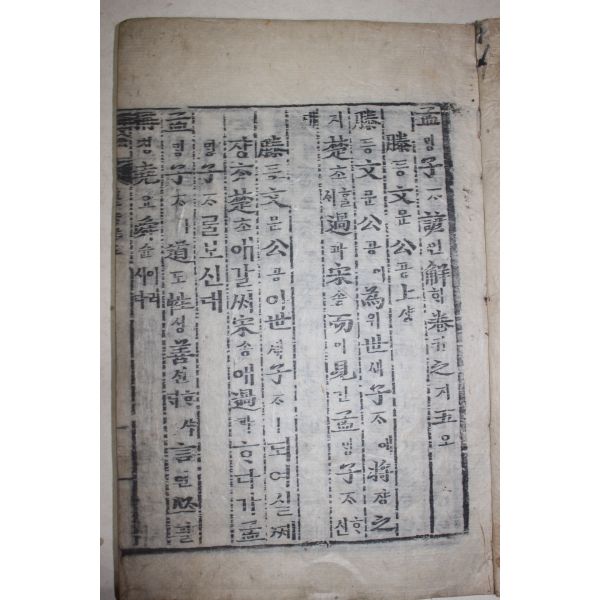 孟ᄆᆡᆼ子ᄌᆞ諺언解ᄒᆡ卷권之지五오
滕등文문公공上샹
滕등文문公공이爲위世셰子ᄌᆞ에將쟝之
지楚초ᄒᆞᆯ셰過과宋송而이見견孟ᄆᆡᆼ子ᄌᆞᄒᆞ신
대
滕등文문公공이世셰子ᄌᆞㅣ도여실ᄣᅢ
쟝ᄎᆞ楚초애갈ᄊᆡ宋송애過과ᄒᆞ다가孟
ᄆᆡᆼ子ᄌᆞᄅᆞᆯ보신대
孟ᄆᆡᆼ子ᄌᆞㅣ道도性셩善션ᄒᆞ샤ᄃᆡ言언必필
稱칭堯요舜슌이러시다